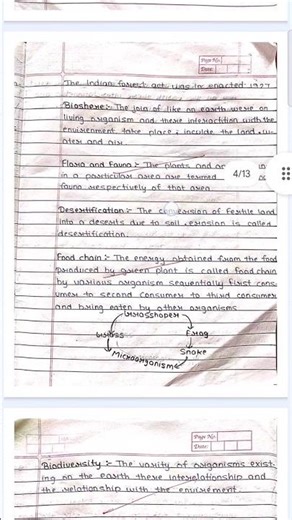 Page No.
Date:
The Indian forest act was in enacted 1927
Bioshere :- The join of like on earth were on
living organism and there interaction with the
envirenment take place; inculde the land, wa-
nter and air.
Flora and Fauna :- The plants and
in a particular area are termed
fauna respectively of that area.
4/13
Desertification :- The conversion of festile land
into a deserts due to soil erosion is called
desertification.
Food chain :- The energy obtained from the food
produced by green plant is called food chain
by various organism sequentially first cons
umer to second consumer to third consumer
and bring eaten by other organisms
Grasshoper
Grass
Frog
Microorganism
Snake
Page No.
Date:
Biodiversity :- The varity of organisms exist
ing on the earth there interrelationship and
the relationship with the envirement.